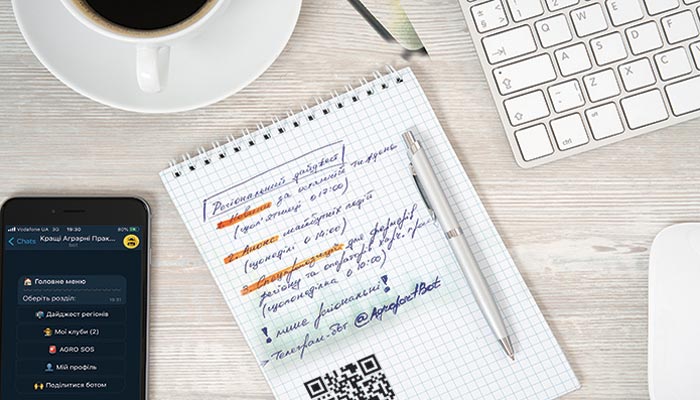 Регіональний дайджест
1. Новини за останній тиждень
(щоп'ятниці о 17:00)
2. Анонс майбутніх подій
(щонеділі о 10:00)
3. Спецпропозиції для фермерів
регіону та операторів харч. пром.
(щопонеділка о 10:00)
! лише регіональні!
> Телеграм-бот @AgroportBot
Vodafone UA 3G 19:30 80%
Chats
Кращі Аграрні Прак...
bot
Головне меню
Оберіть розділ: 19:31
Дайджест регіонів
Мої клуби (2)
AGRO SOS
Мій профіль
Поділитися ботом
Q
A
S
D
Z
X
C
shift
ctrl
alt